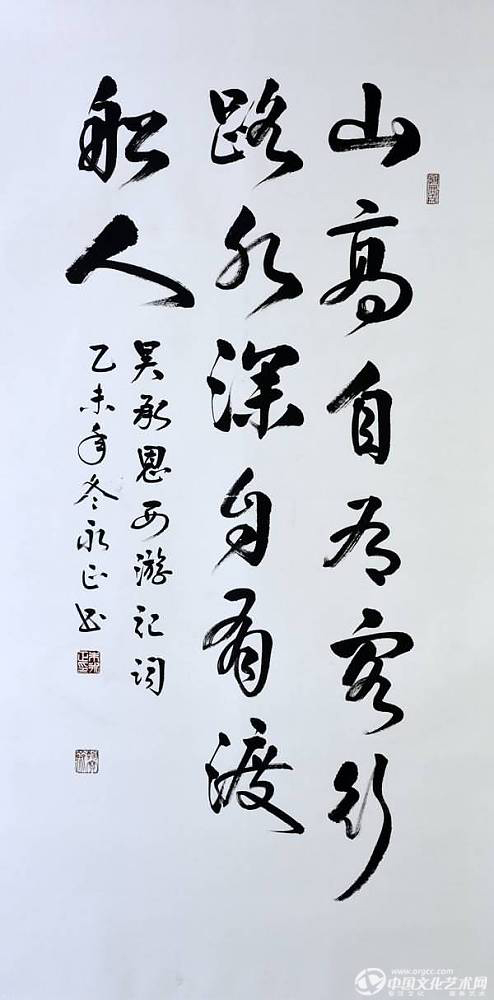 山高自有客行
路水深自有渡
船人
吴承恩西游记词
乙未年冬永正书
www.orgcc.com
中国文化艺术网